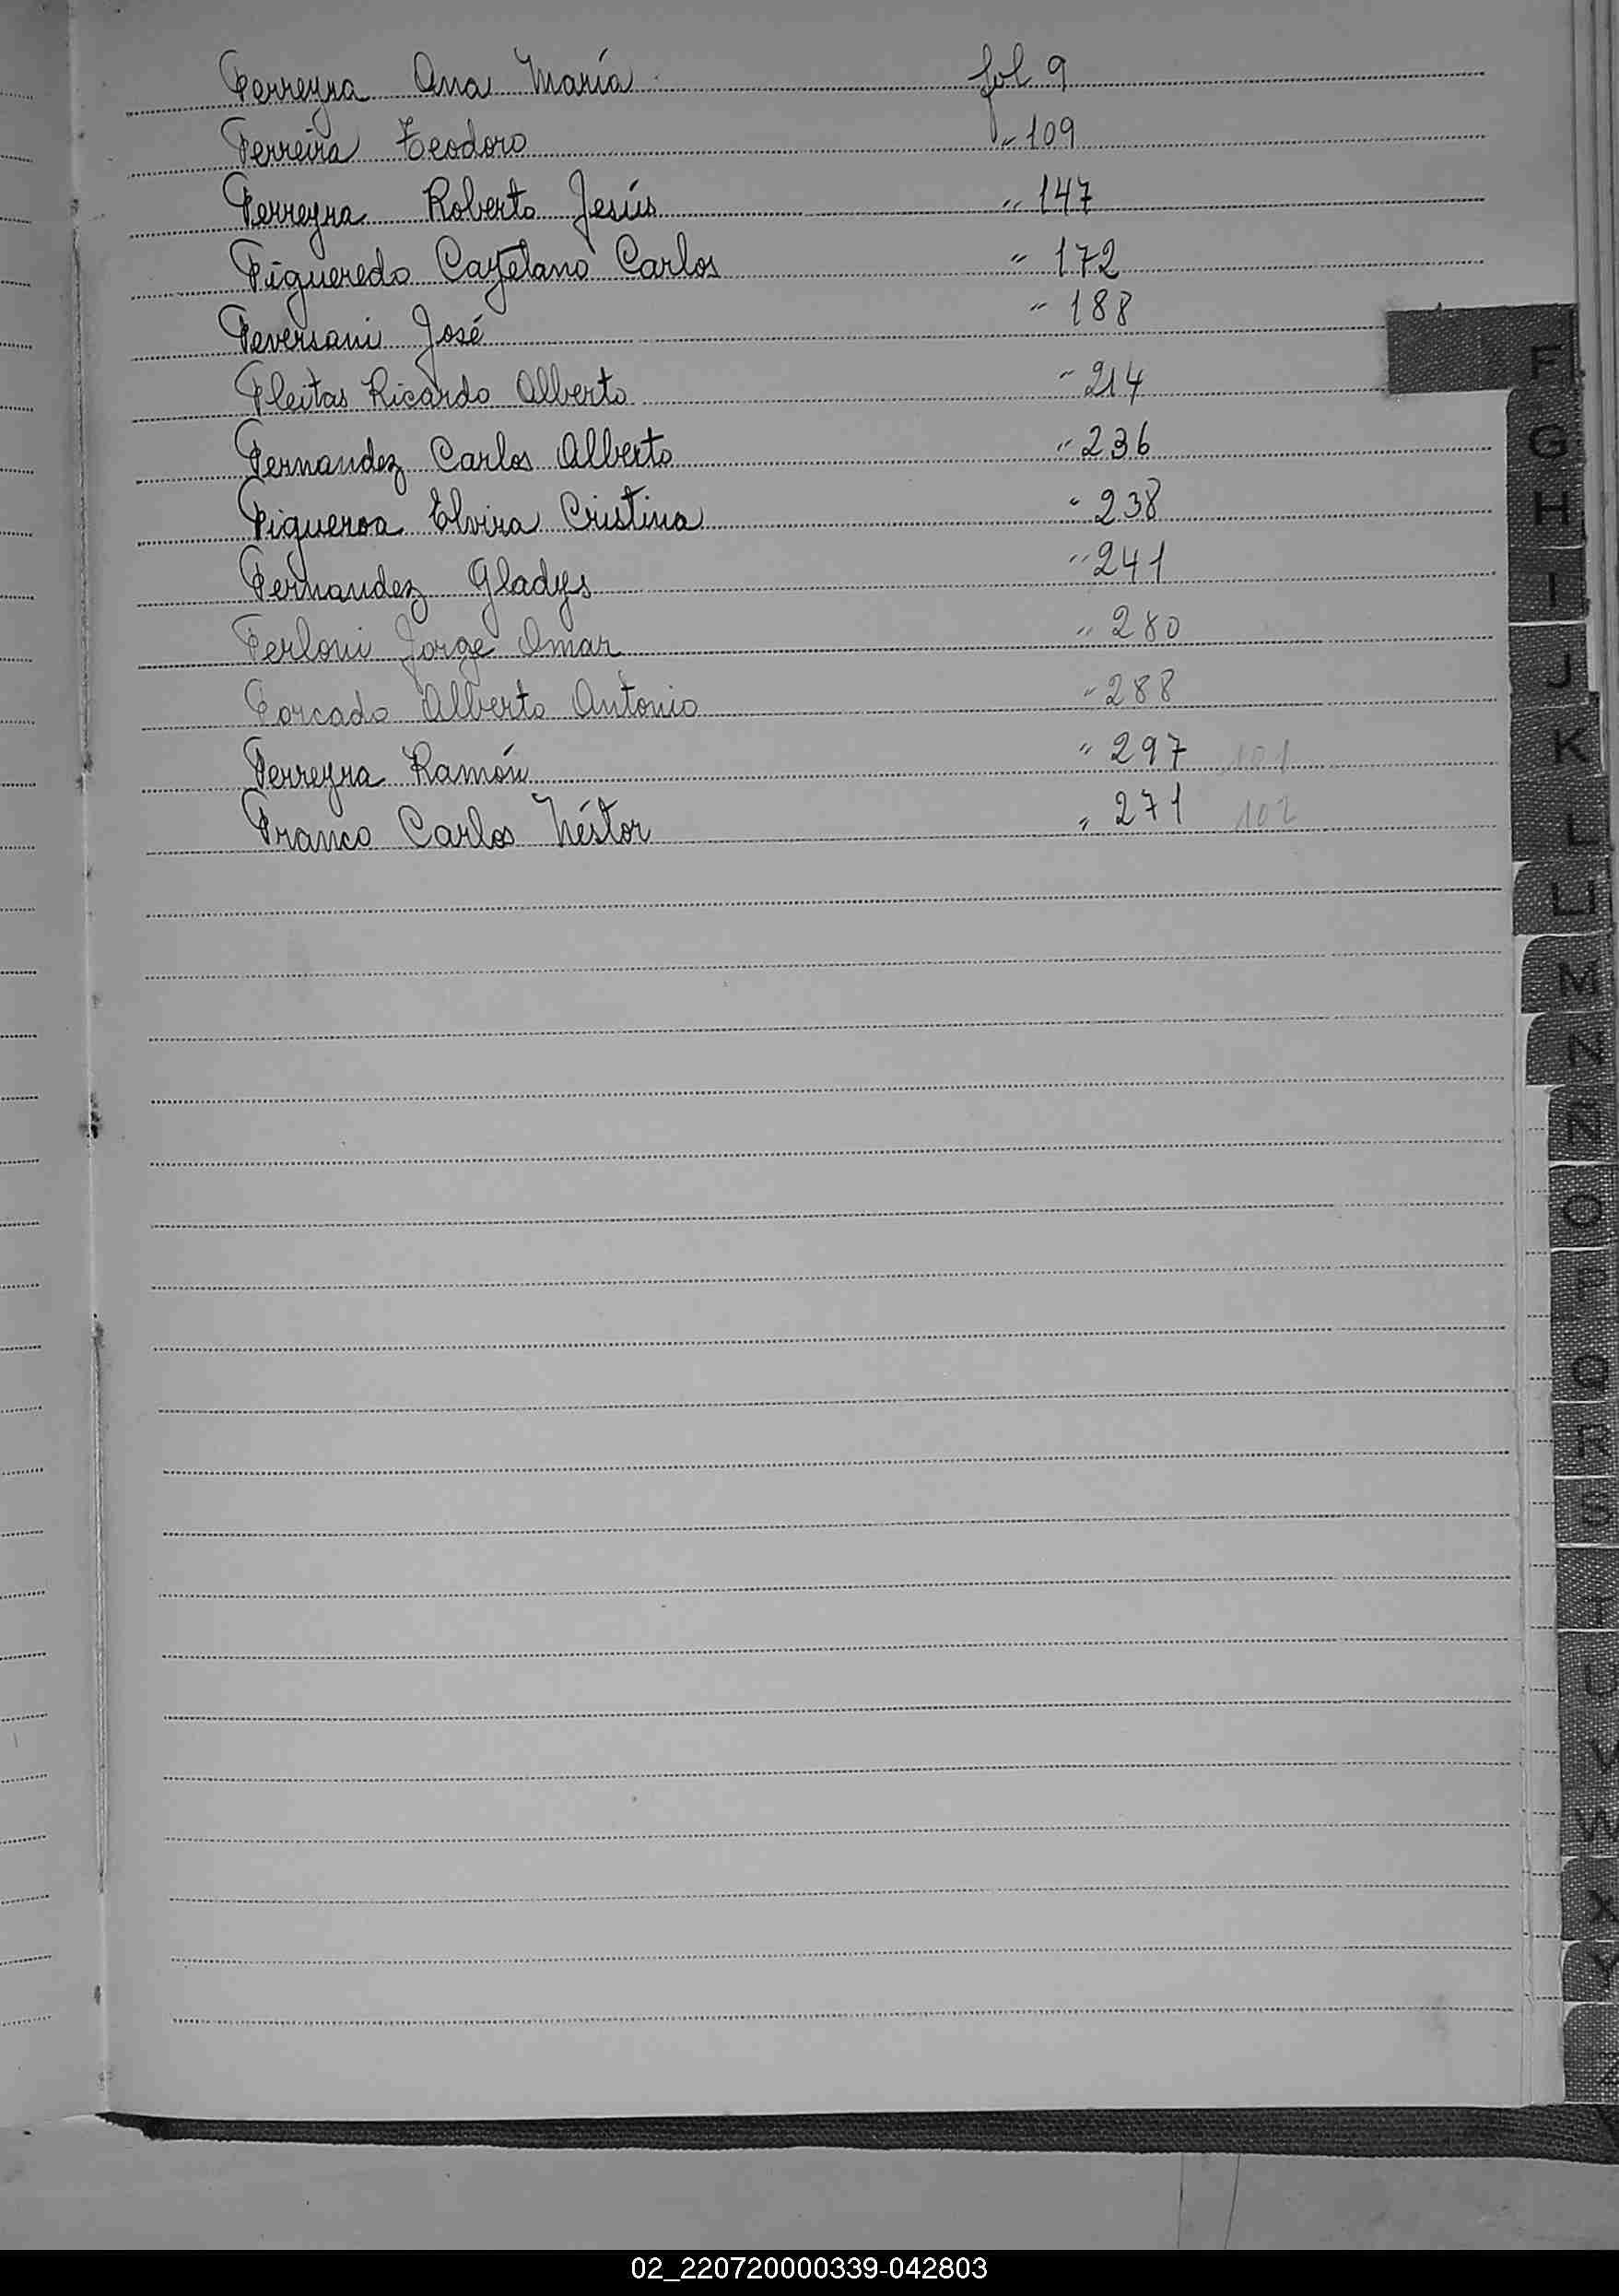 Ferreyra Ana María fol 9
Ferreira Teodoro " 109
Ferreyra Roberto Jesús " 147
Figueredo Cayetano Carlos " 172
Feversani José " 188
Fleitas Ricardo Alberto " 214
Fernandez Carlos Alberto " 236
Figueroa Elvira Cristina " 238
Fernandez Gladys " 241
Ferloni Jorge Omar " 280
Forcado Alberto Antonio " 288
Ferreyra Ramón " 297 101
Franco Carlos Néstor " 271 102
F
G
H
I
J
K
L
LL
M
N
Ñ
O
P
Q
R
S
T
U
V
W
X
Y
Z
02_220720000339-042803